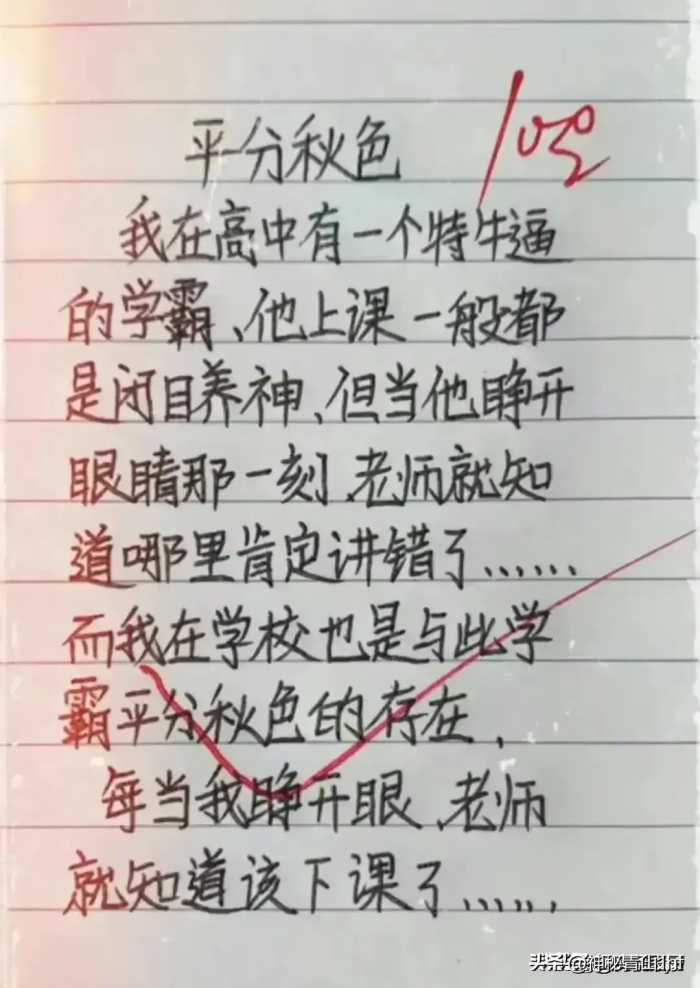 平分秋色
我在高中有一个特牛逼
的学霸、他上课一般都
是闭目养神、但当他睁开
眼睛那一刻、老师就知
道哪里肯定讲错了......
而我在学校也是与此学
霸平分秋色的存在,
每当我睁开眼、老师
就知道该下课了......
头条